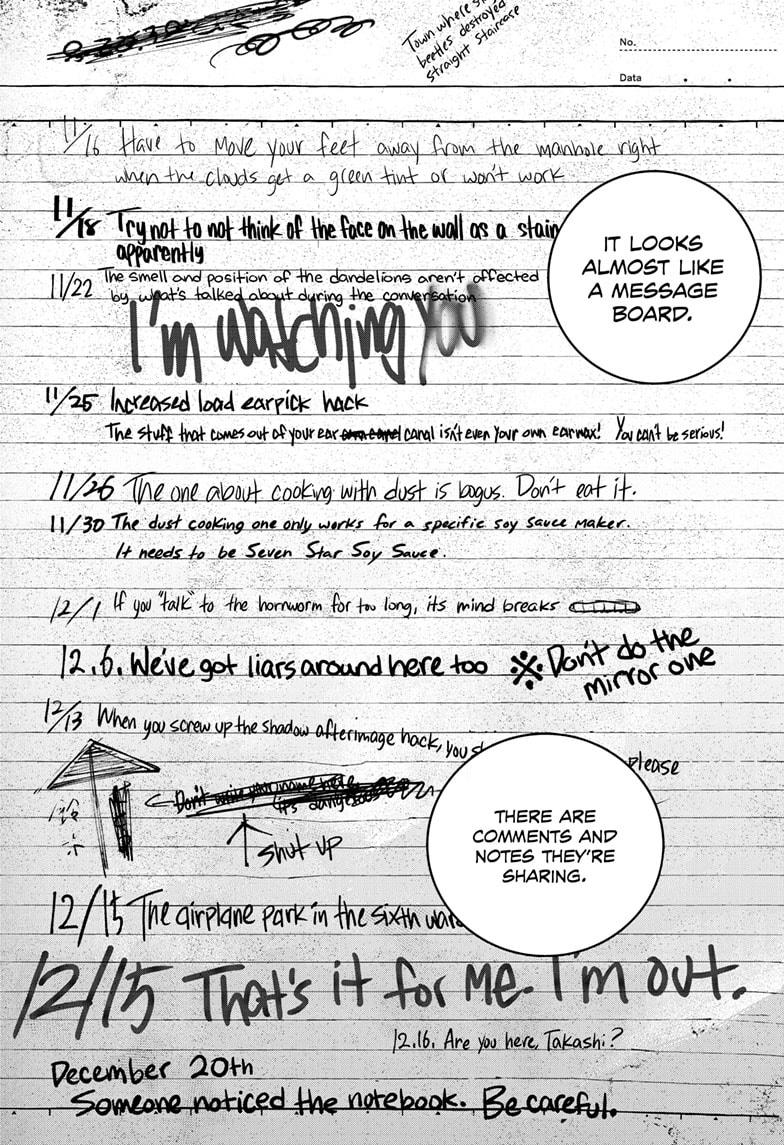 Town where S
beetles destroyed
Straight Staircase
No.
Data
11/16 Have to move your feet away from the manhole right
when the clouds get a green tint or won't work
11/18 Try not to not think of the face on the wall as a stain
apparently
IT LOOKS
ALMOST LIKE
A MESSAGE
BOARD.
11/22 The smell and position of the dandelions aren't affected
by what's talked about during the conversation
I'm watching you
11/25 Increased load earpick hack
The stuff that comes out of your ear canal isn't even your own earwax! You can't be serious!
11/26 The one about cooking with dust is bogus. Don't eat it.
11/30 The dust cooking one only works for a specific soy sauce maker.
It needs to be Seven Star Soy Sauce.
12/1 If you "talk" to the hornworm for too long, its mind breaks
12.6. We've got liars around here too ※ Don't do the
mirror one
12/13 When you screw up the shadow afterimage hack, you please
Don't write your name here
its dangerous
Shut up
THERE ARE
COMMENTS AND
NOTES THEY'RE
SHARING.
12/15 The airplane park in the sixth ward
12/15 That's it for me. I'm out.
12.16. Are you here, Takashi?
December 20th
Someone noticed the notebook. Be careful.